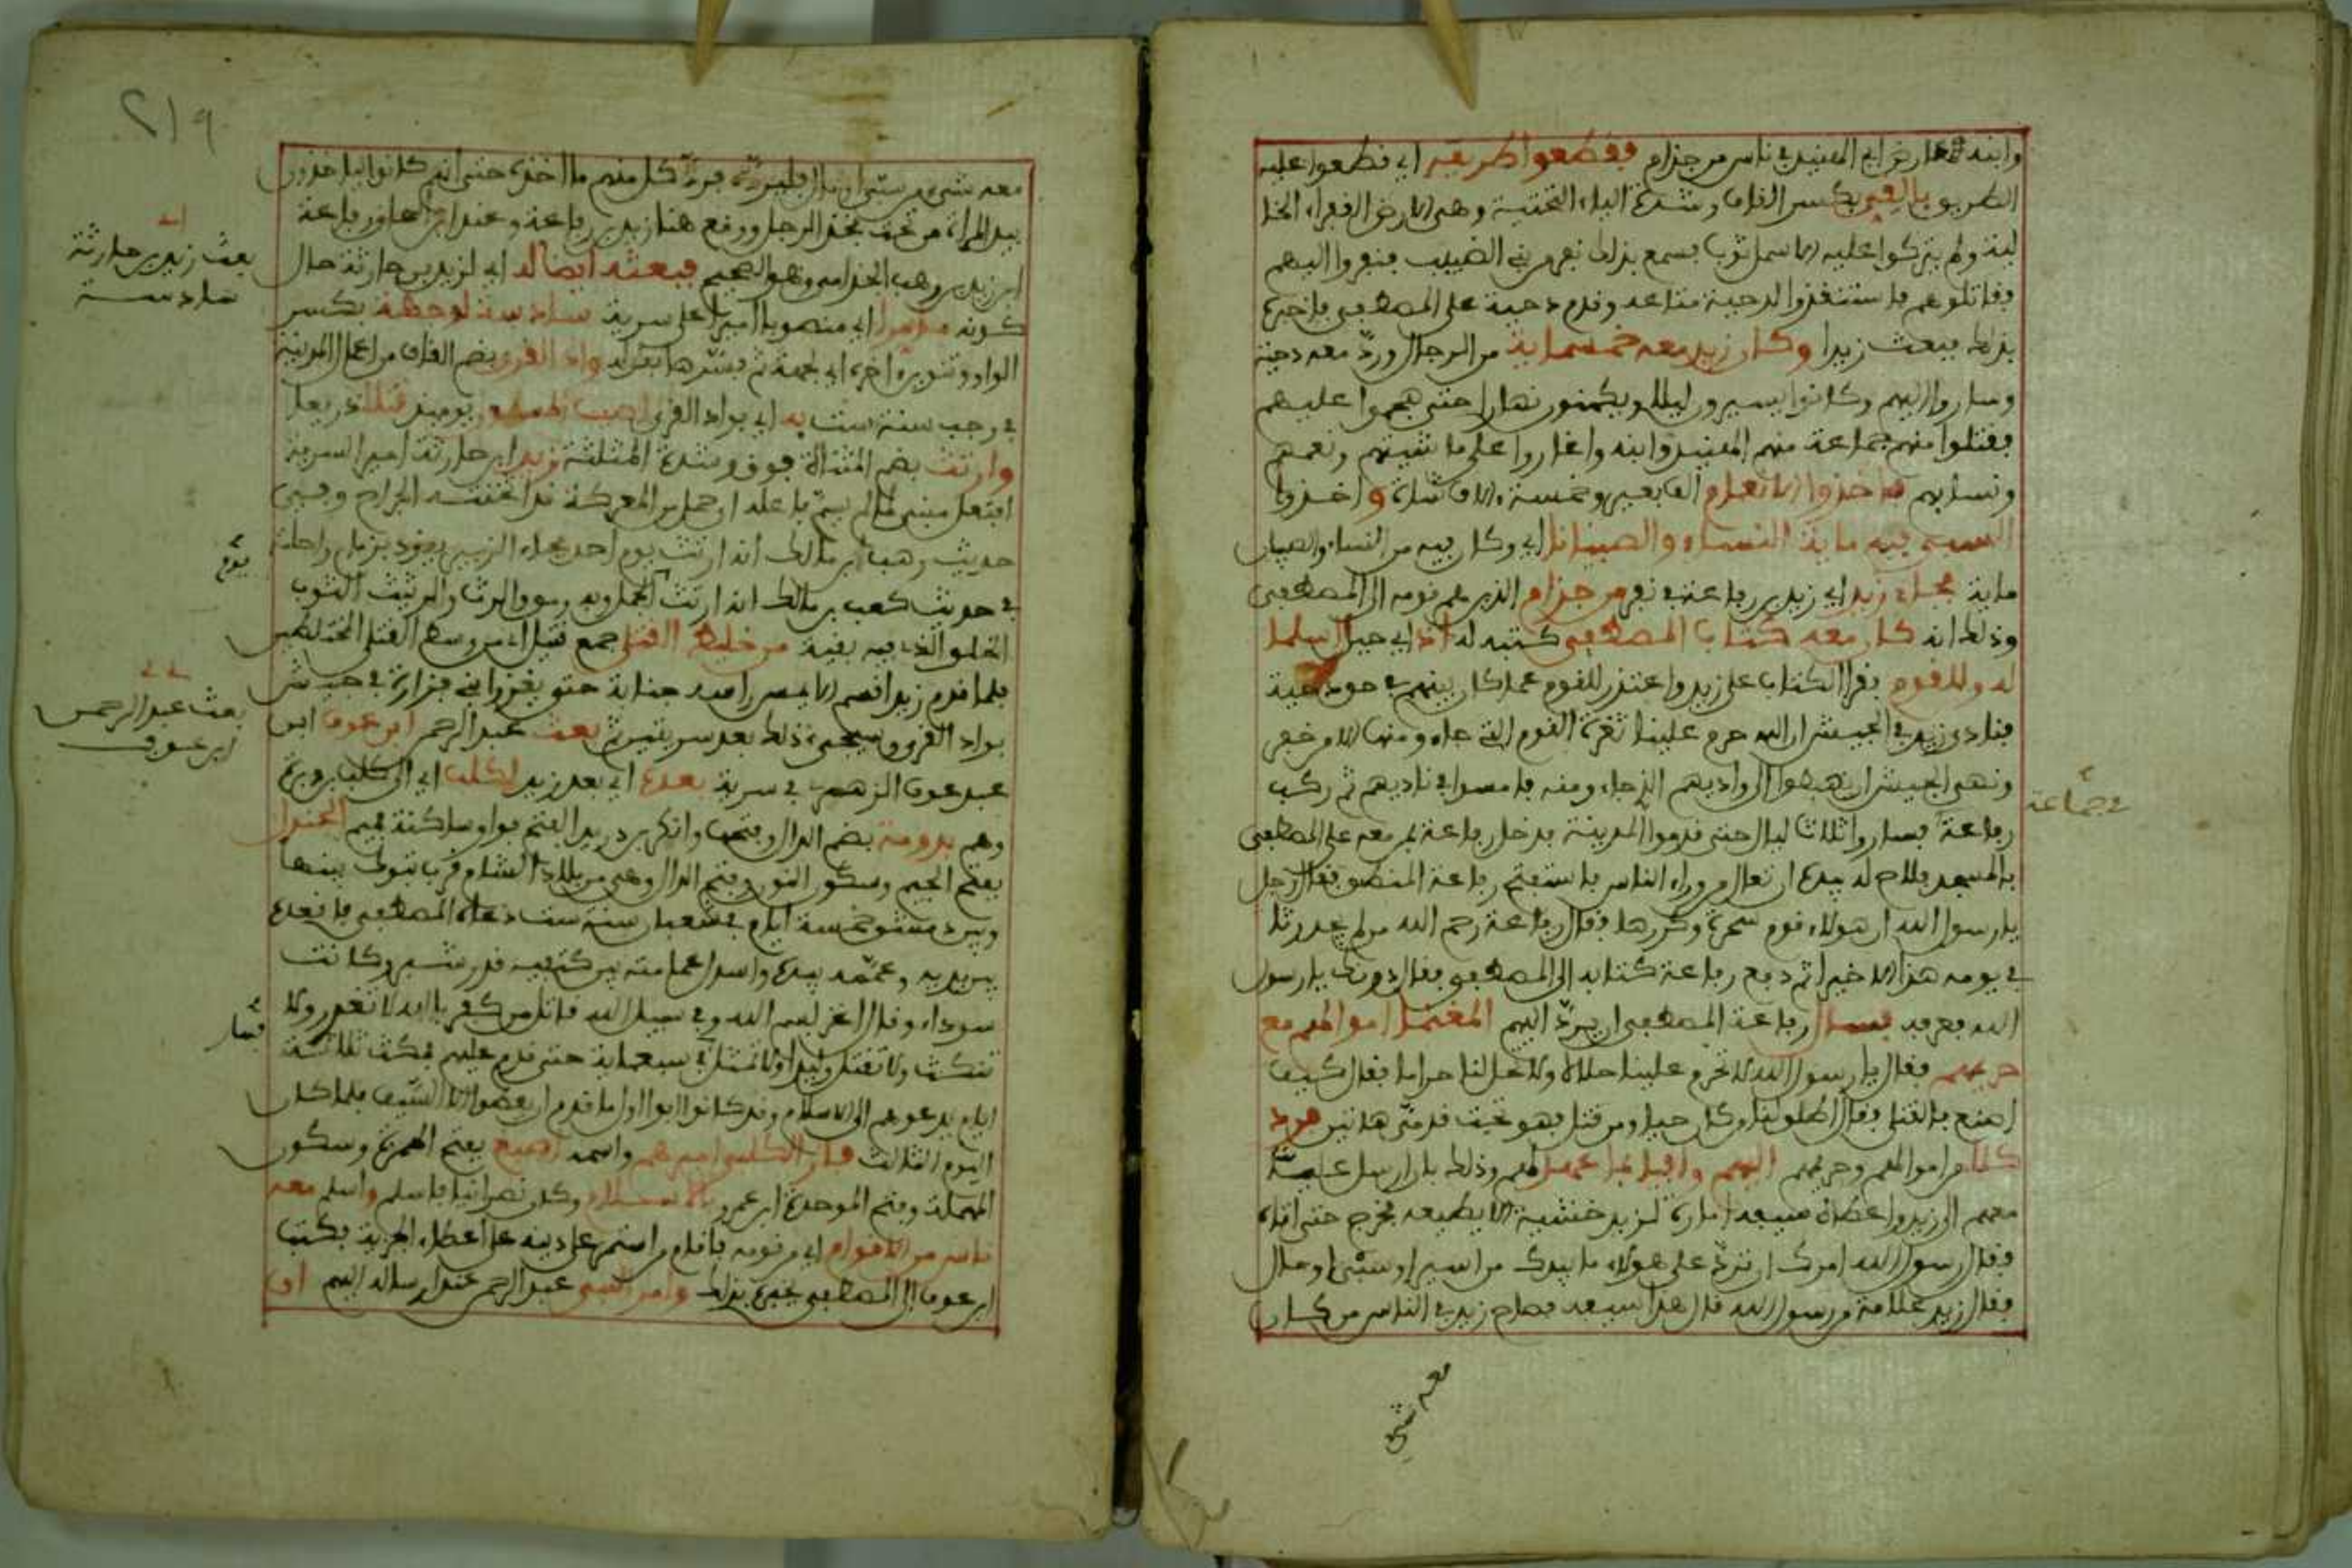 وابنه عارض ابي الهنيد في ناس من جذام فقطعوا طريقه اي قطعوا عليه
الطريق بالقي بكسر القاف وشدة الياء التحتية وهي الارض القفراء الخا
لية ولم يتركوا عليه الا سمل ثوب فسمع بذلك نفر من بني الضبيب فنفروا اليهم
فقاتلوهم فاستنقذوا لدحية متاعه وقدم دحية على المصطفى فاخبره
بذلك فبعث زيدا وكان زيد معه خمسماية من الرجال ورد معه دحية
وساروا اليهم وكانوا يسيرون ليلا ويكمنون نهارا حتى هجموا عليهم
فقتلوا منهم جماعة منهم الهنيد وابنه واغاروا على ماشيتهم ونعمهم
ونسايهم فاخذوا الانعام الف بعير وخمسة الاف شاة و اخذوا
السبي فيه ماية النساء والصبيانا اي وكان فيه من النساء والصبيان
ماية فجاء زيد اي زيد بن رفاعة في نفر من جذام الذين هم قومه الى المصطفى
وذلك انه كان معه كتاب المصطفى كتبه له اذ اي حين اسلما
له وللقوم فقرا الكتاب على زيد واعتذر للقوم عما كان بينهم في حق دحية
فنادى زيد في الجيش ان الله حرم علينا ثغرة القوم التي جاءوا منها الا من ختر
ونهى الجيش ان يهبطوا الى واديهم الذي جاءوا منه فامسوا في ناديهم ثم ركب
رفاعة فساروا ثلاث ليال حتى قدموا المدينة فدخل رفاعة بمن معه على المصطفى
في جماعة
بالمسجد فلاح له بيده ان تعال من وراء الناس فاستفتح رفاعة المنطق فقال رجل
يا رسول الله ان هولاء قوم سحرة وكررها فقال رفاعة رحم الله من لم يحذنا
في يومه هذا الا خيرا ثم دفع رفاعة كتابه الى المصطفى فقال دونك يا رسول
الله فعرفه فسال رفاعة المصطفى ان يرد اليهم المغتنما اموالهم مع
حريمهم فقال يا رسول الله لا تحرم علينا حلالا ولا تحل لنا حراما فقال كيف
اصنع بالقتلى فقال اطلق لنا من كان حيا ومن قتل فهو تحت قدمي هاتين فرد
كلا من اموالهم وحريمهم اليهم وافيا لما لهم وذلك بان ارسل عليا
معهم الى زيد واعطاه سيفه امارة لزيد خشية الا يطيعه فخرج حتى اتاه
فقال رسول الله امرك ان ترد على هولاء ما بيدك من اسير او سبي او مال
فقال زيد علامة من رسول الله قال هذا سيفه فصاح زيد في الناس من كان
معه شي
٢١٩
معه شيء من سبي او مال فليرده فرد كل منهم ما اخذه حتى انهم كانوا ياخذون
بيد المراة من تحت فخذ الرجل ووقع هنا زيد بن رفاعة وعند ابن رفاعة
ابن زيد بن وهب الجذامي وهو الصحيح فبعثه ايضا له اي لزيد بن حارثة حال
بعث زيد بن حارثة
سادسة
كونه مؤمرا اي منصوبا اميرا على سرية سادسة لوجهة بكسر
الواو وتنوين اخره اي لجهة ثم فسرها بقوله واد القرى بضم القاف من اعمال المدينة
في رجب سنة ست به اي بواد القرى اصيب المسلمون يوميذ قتلا ذريعا
وارتث بضم المثناة فوق وشدة المثلثة زيد ابن حارثة امير السرية
افتعل مبني لما لم يسم فاعله اي حمل من المعركة قد اثخنته الجراح وفي
حديث وهب ابن مالك انه ارتث يوم احد فجاء الزبير يقود بزمام راحلته
يوم
في حديث كعب بن مالك انه ارتث والرث والرثيث الثوب
الخلق الذي فيه بقية من خليط القتلى جمع قتيل اي من وسط القتلى المختلطين
فلما قدم زيد اقسم الا يمس راسه جنابة حتى يغزو بني فزارة في جيش
بواد القرى وسيجيء ذلك بعد سريتين ثم بعث عبد الرحمن ابن عوف ابن
بعث عبد الرحمن
ابن عوف
عبد عوف الزهري في سرية بعده اي بعد زيد لكلب اي الى كلب بن وبرة
وهم بدومة بضم الدال وفتحها وانكر ابن دريد الفتح فواو ساكنة فميم الجندل
بفتح الجيم وسكون النون وفتح الدال وهي من بلاد الشام قرب تبوك بينها
وبين دمشق خمسة ايام في شعبان سنة ست دعاه المصطفى فاقعده
بين يديه وعممه بيده واسدل عمامته بين كتفيه قدر شبر وكانت
سوداء وقال اغز بسم الله وفي سبيل الله قاتل من كفر بالله لا تغدر ولا
فسار
تنكث ولا تقتل وليدا ولا تمثل في سبعماية حتى قدم عليهم فمكث ثلاثة
ايام يدعوهم الى الاسلام وقد كانوا ابوا اول ما قدم ان يعطوا الا السيف فلما كان
اليوم الثالث فاز الكلبي اميرهم واسمه اصبغ بفتح الهمزة وسكون
المهملة وفتح الموحدة ابن عمرو بالاسلام وكان نصرانيا فاسلم واسلم معه
ناس من الاقوام اي من قومه فاقام من استمر على دينه على اعطاء الجزية فكتب
ابن عوف الى المصطفى يخبره بذلك وامر النبي عبد الرحمن عند ارساله اليهم ان